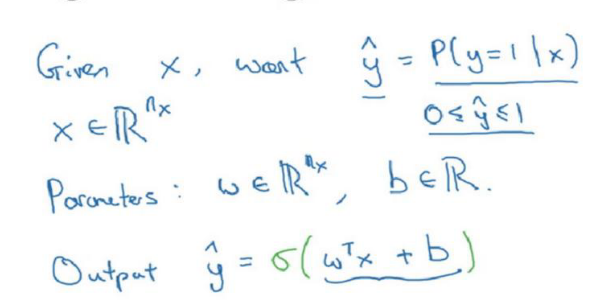 Given x, want ŷ = P(y=1|x)
x ∈ ℝⁿˣ
0 ≤ ŷ ≤ 1
Parameters: w ∈ ℝⁿˣ, b ∈ ℝ.
Output ŷ = σ(wᵀx + b)